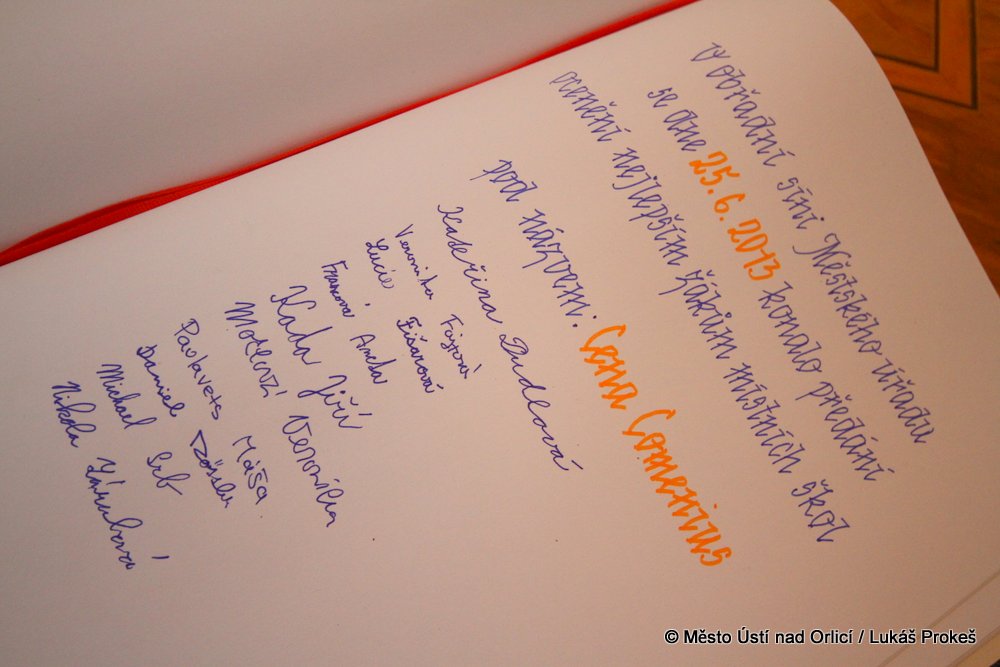 V obřadní síni Městského úřadu
se dne 25.6.2013 konalo předání
ocenění nejlepším žákům místních škol
pod názvem: Cena Comenius
Kateřina Dudlová
Veronika
Lucie Fišarová
Franková Aneta
Kada Jiří
Motlová Veronika
Pavlavets Máša
Daniel
Michael Srb
Nikola Zárubová
© Město Ústí nad Orlicí / Lukáš Prokeš